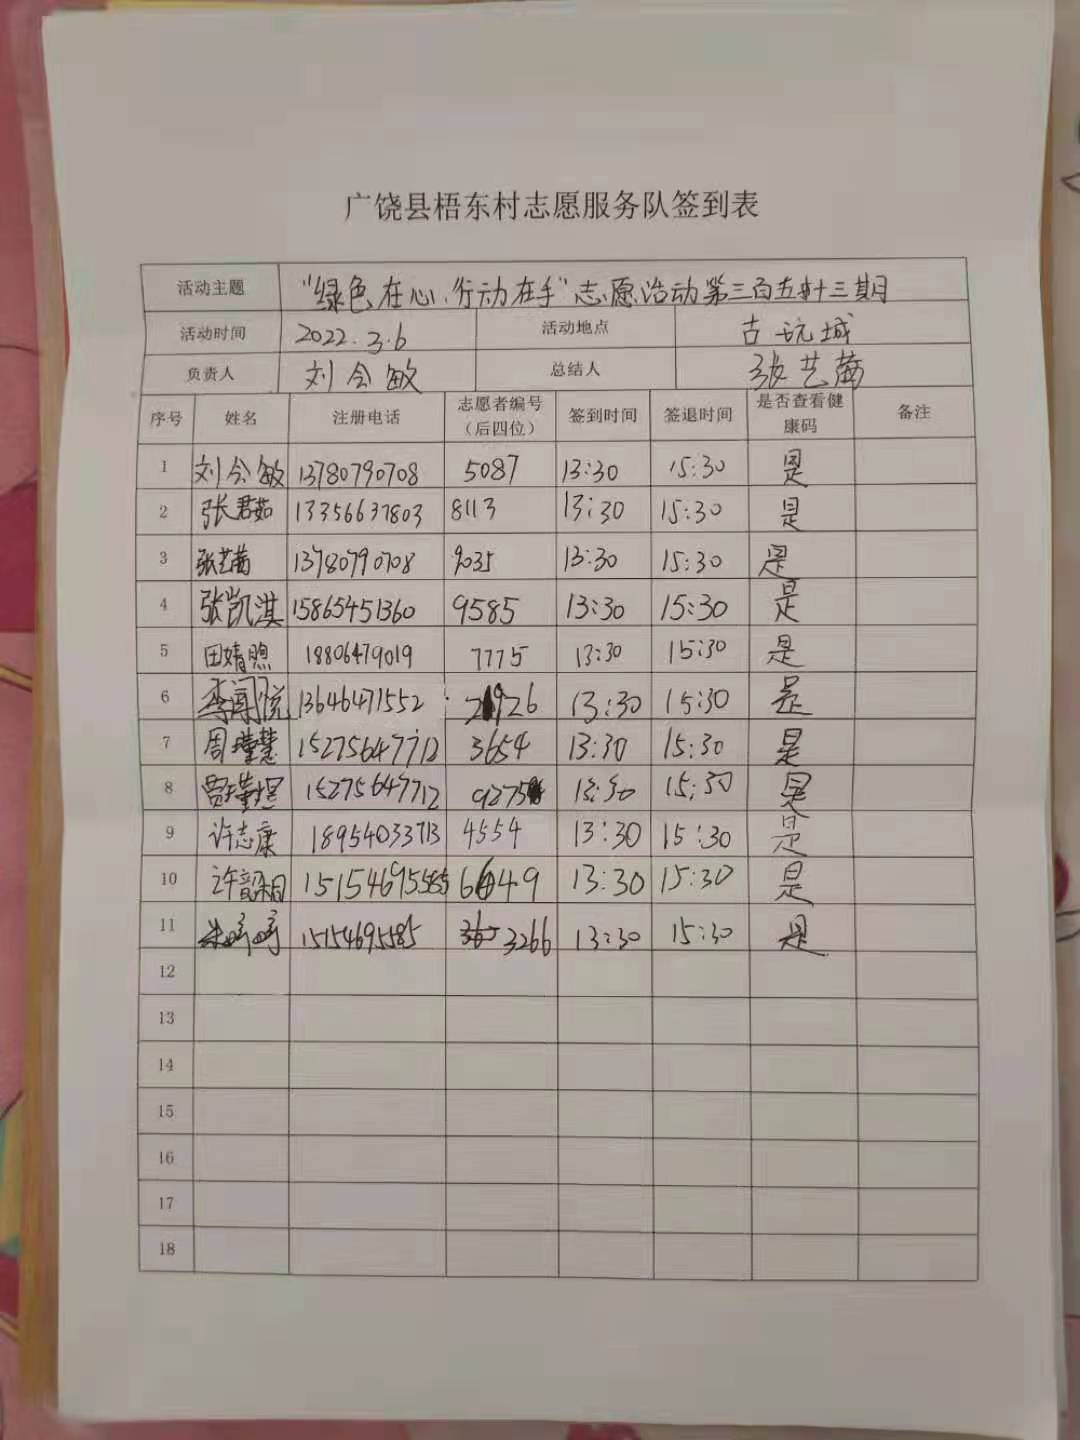 广饶县梧东村志愿服务队签到表
活动主题 "绿色在心、行动在手"志愿活动第三百五十三期
活动时间 2022.3.6 活动地点 古玩城
负责人 刘会敏 总结人 张艺茜
序号 姓名 注册电话 志愿者编号（后四位） 签到时间 签退时间 是否查看健康码 备注
1 刘会敏 13780790708 5087 13:30 15:30 是
2 张君茹 13356637803 8113 13:30 15:30 是
3 张艺茜 13780790708 9035 13:30 15:30 是
4 张凯淇 15865451360 9585 13:30 15:30 是
5 田婧煦 18806479019 7775 13:30 15:30 是
6 李闻悦 13646471552 13:30 15:30 是
7 周瑾慧 15275647712 3654 13:30 15:30 是
8 贾瑾煜 15275647712 9275 13:30 15:30 是
9 许志康 18954033713 4554 13:30 15:30 是
10 许韶桐 15154695585 6649 13:30 15:30 是
11 15154695585 3266 13:30 15:30 是
12
13
14
15
16
17
18